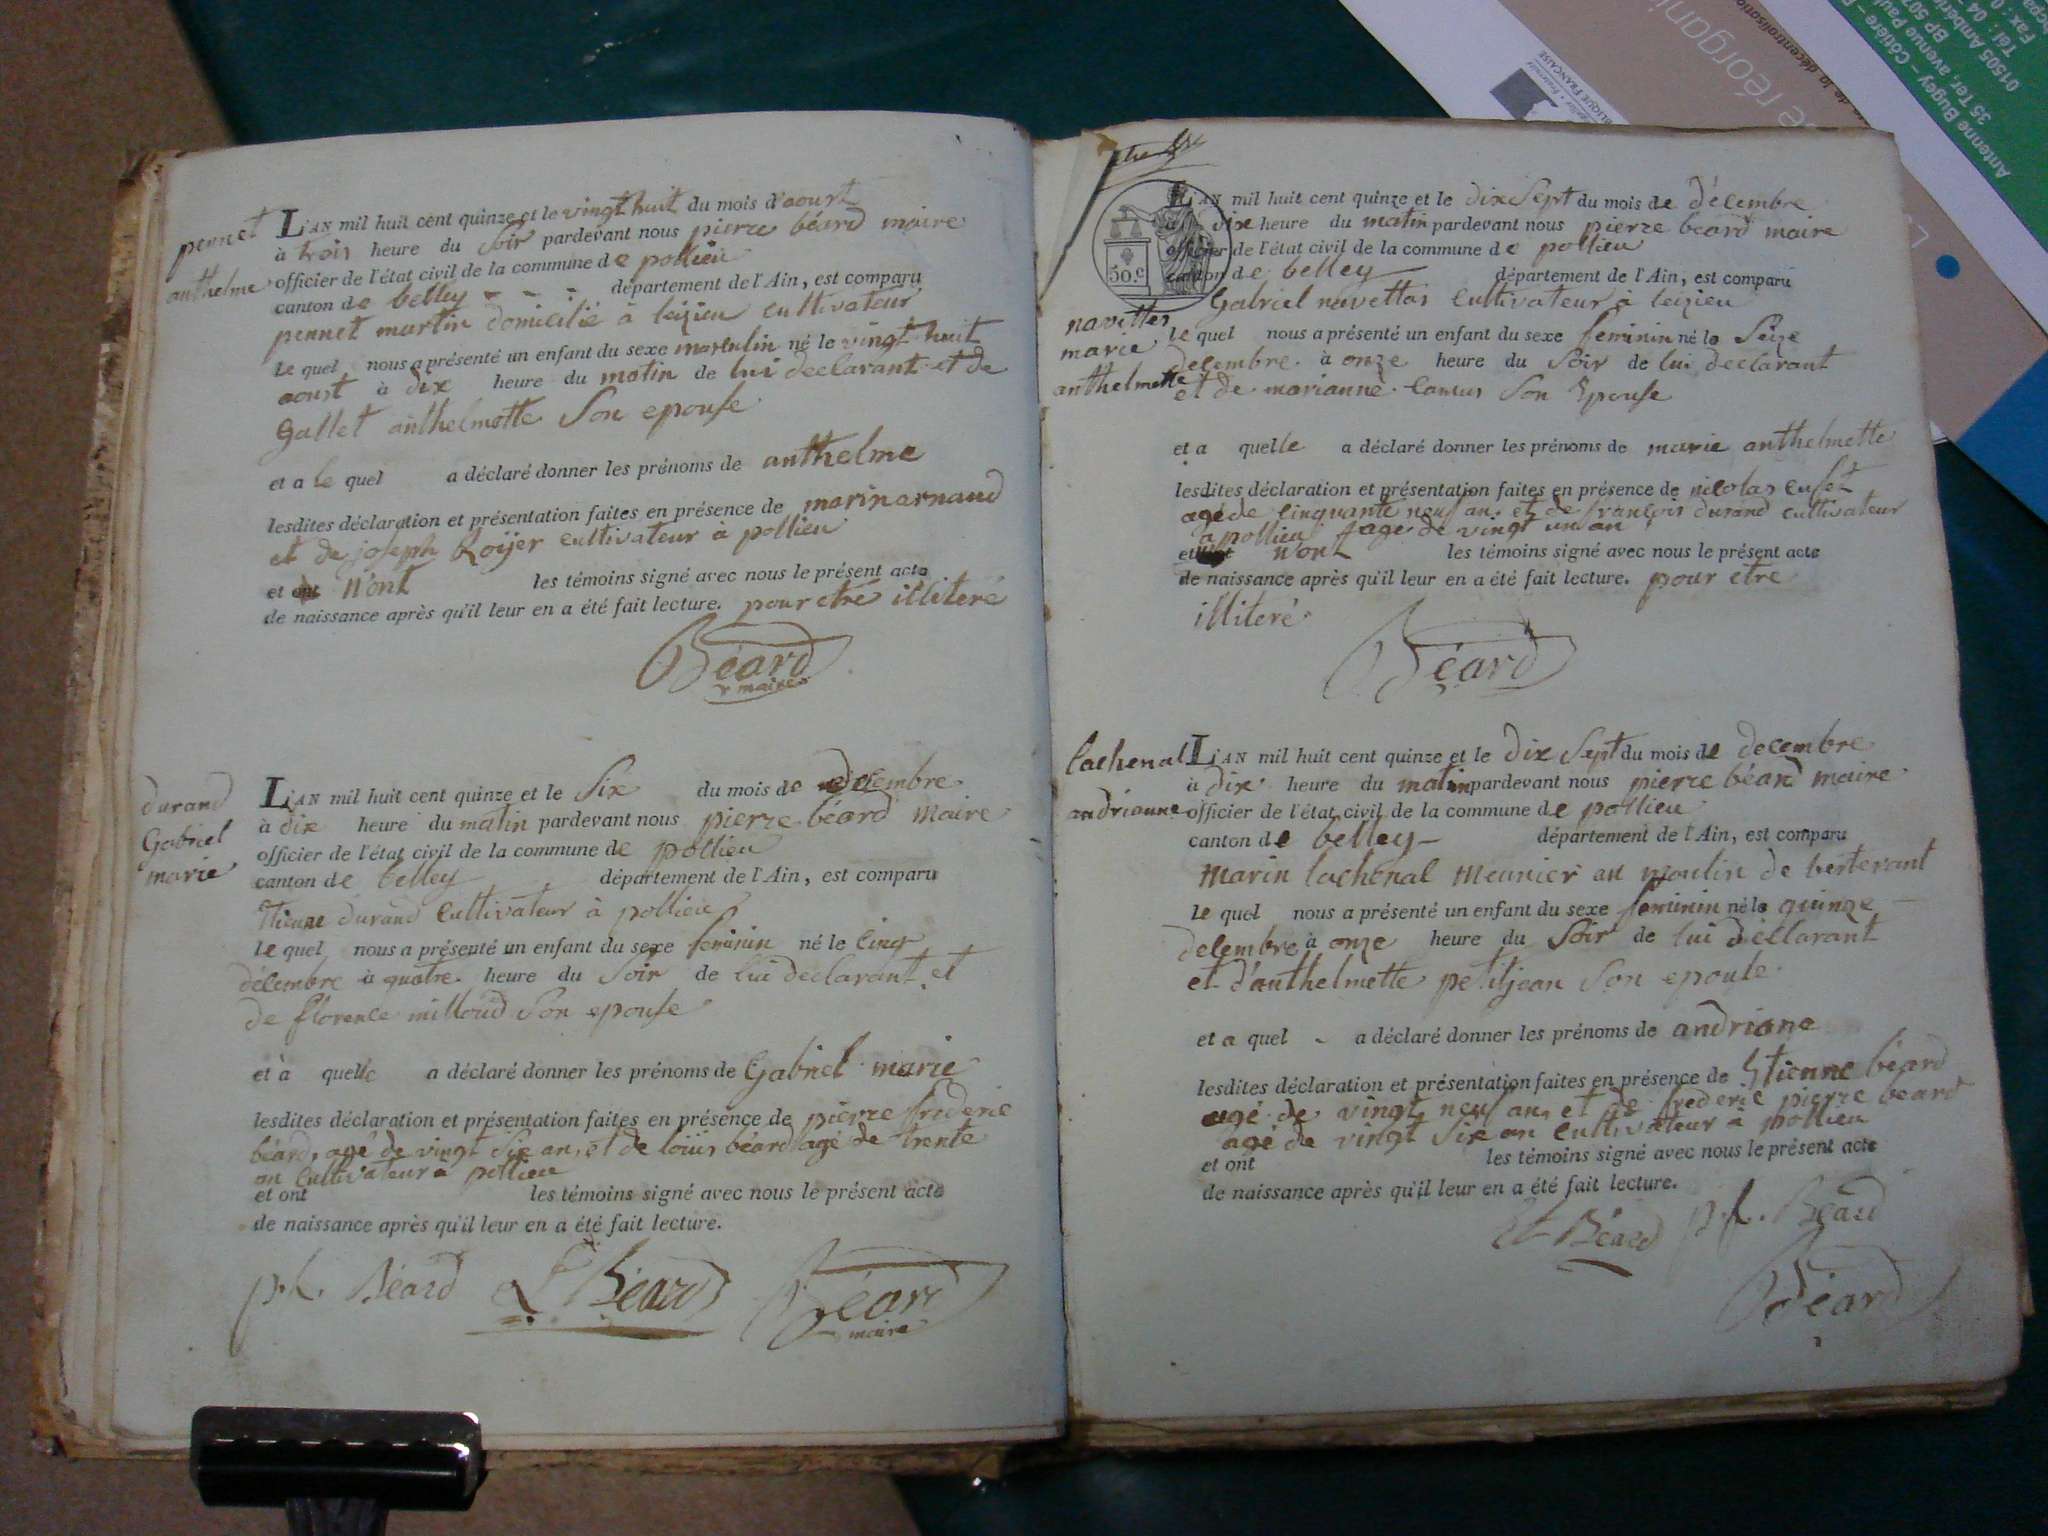 pennet
anthelme
L'AN mil huit cent quinze et le vingt huit du mois d'aoust
à trois heure du soir pardevant nous pierre béard maire
officier de l'état civil de la commune de pollieu
canton de belley - - - département de l'Ain, est comparu
pennet martin domicilié à leizieu cultivateur
Le quel nous a présenté un enfant du sexe masculin né le vingt huit
aoust à dix heure du matin de lui declarant et de
gallet anthelmette son epouse
et a le quel a déclaré donner les prénoms de anthelme
lesdites déclaration et présentation faites en présence de marin arnaud
et de joseph Roijer cultivateur à pollieu
et ont n'ont les témoins signé avec nous le présent acte
de naissance après qu'il leur en a été fait lecture. pour etre illiteré
Béard
maire
durand
Gabriel
marie
L'AN mil huit cent quinze et le six du mois de decembre
à dix heure du matin pardevant nous pierre béard maire
officier de l'état civil de la commune de pollieu
canton de belley département de l'Ain, est comparu
Etienne durand cultivateur à pollieu
Le quel nous a présenté un enfant du sexe feminin né le cinq
décembre à quatre heure du soir de lui declarant et
de florence milloud son epouse
et à quelle a déclaré donner les prénoms de Gabriel marie
lesdites déclaration et présentation faites en présence de pierre frideric
béard, agé de vingt six an, et de loüis béard agé de trente
an cultivateur à pollieu
et ont les témoins signé avec nous le présent acte
de naissance après qu'il leur en a été fait lecture.
p.f. Béard L Béard Béard
maire
50.c
L'AN mil huit cent quinze et le dix sept du mois de décembre
à dix heure du matin pardevant nous pierre béard maire
officier de l'état civil de la commune de pollieu
canton de belley département de l'Ain, est comparu
Gabriel navettas cultivateur à leizieu
navittes
marie
anthelmette
Le quel nous a présenté un enfant du sexe feminin né le seize
decembre à onze heure du soir de lui declarant
et de marianne camus son Epouse
et a quelle a déclaré donner les prénoms de marie anthelmette
lesdites déclaration et présentation faites en présence de nicolas cuset
agé de cinquante neuf an, et de françois durand cultivateur
à pollieu agé de vingt un an
et n'ont les témoins signé avec nous le présent acte
de naissance après qu'il leur en a été fait lecture. pour etre
illiteré
Béard
lachenal
andrianne
L'AN mil huit cent quinze et le dix sept du mois de decembre
à dix heure du matin pardevant nous pierre béard maire
officier de l'état civil de la commune de pollieu
canton de belley département de l'Ain, est comparu
Marin lachenal meunier au moulin de berterant
Le quel nous a présenté un enfant du sexe feminin né le quinze
decembre à onze heure du soir de lui declarant
et d'anthelmette petitjean son epouse
et a quel a déclaré donner les prénoms de andriane
lesdites déclaration et présentation faites en présence de Etienne béard
agé de vingt neuf an, et de frederic pierre beard
agé de vingt six an cultivateur à pollieu
et ont les témoins signé avec nous le présent acte
de naissance après qu'il leur en a été fait lecture.
Et Béard p.f. Béard
Béard
e réorgani
de la décentralisation
BLIQUE FRANÇAISE
Antenne Bugey – Côtière
35 Ter, avenue Paul
BP 50
01505 Ambéri
Tél : 04
Fax : 0